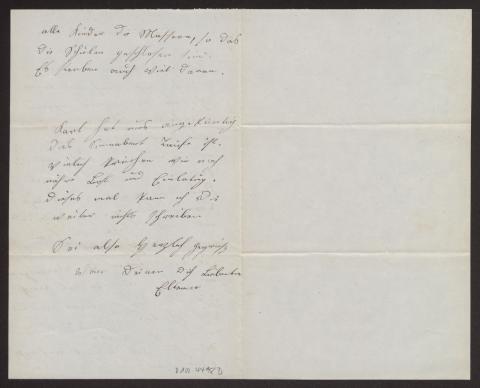 alle Kinder da Massern, so das
die Schulen geschlossen sind.
Es sterben auch viel daran.
Karl hat uns angekündigt
das Sonnabent Taufe ist.
vielleich kriechen wir noch
nähre und Einladung.
dieses mal kann ich Dir
weiter nichts schreiben
Sei also Herzlich gegrüßt
von Deinen Dich liebenden
Eltern